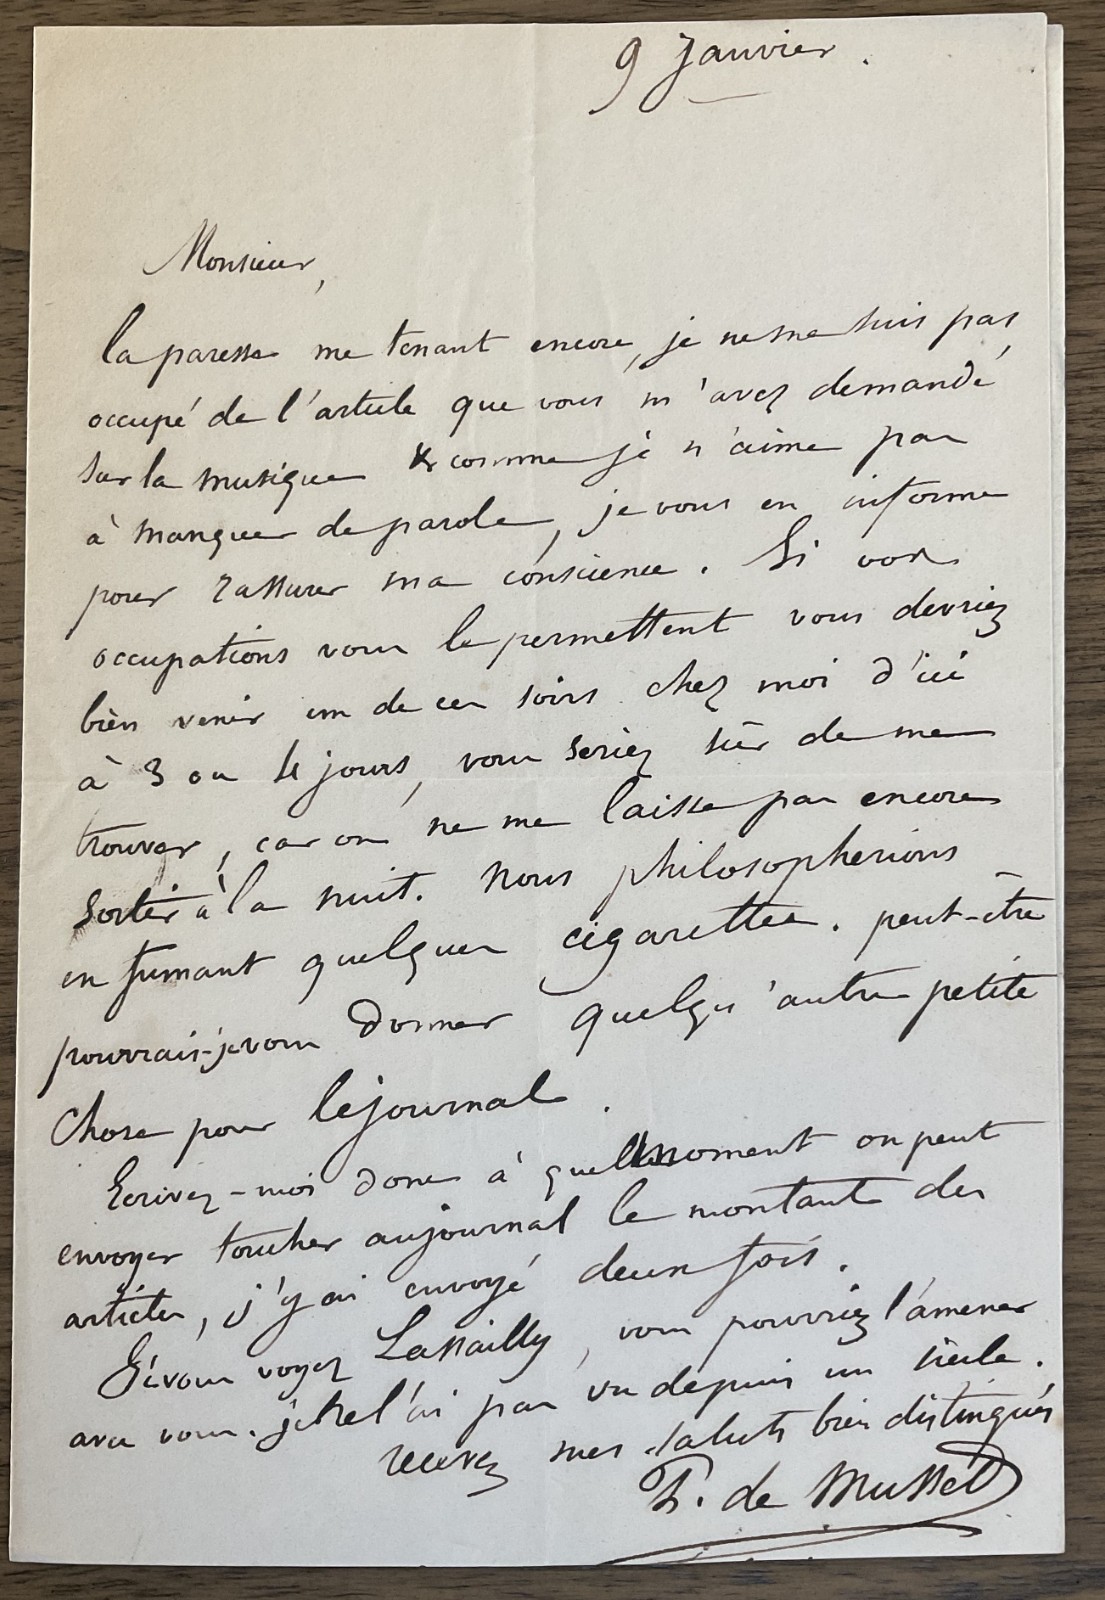 9 Janvier.
Monsieur,
la paresse me tenant encore, je ne me suis pas
occupé de l'article que vous m'avez demandé
sur la musique & comme je n'aime pas
à manquer de parole, je vous en informe
pour rassurer ma conscience. Si vos
occupations vous le permettent vous devriez
bien venir un de ces soirs chez moi d'ici
à 3 ou 4 jours, vous seriez sûr de me
trouver, car on ne me laisse pas encore
sortir à la nuit. Nous philosopherions
en fumant quelques cigarettes. peut-être
pourrais-je vous donner quelqu'autre petite
chose pour le journal.
Ecrivez-moi donc à quel moment on peut
envoyer toucher au journal le montant des
articles, j'y ai envoyé deux fois.
Si vous voyez Lassailly, vous pourriez l'amener
avec vous. je ne l'ai pas vu depuis un siècle.
recevez mes saluts bien distingués
P. de Musset